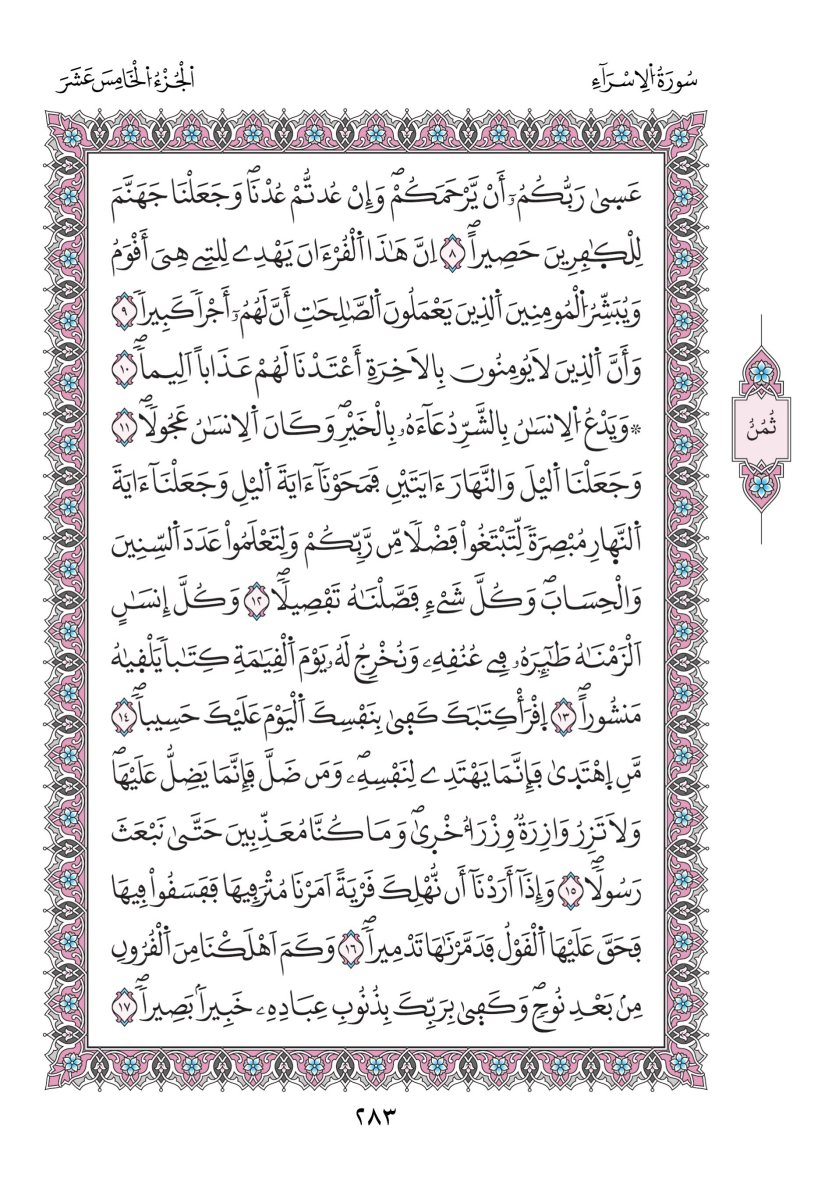 سُورَةُ اُ۬لِاسْرَآءِ
اَ۬لْجُزْءُ اُ۬لْخَامِسَ عَشَرَ
عَس۪يٰ رَبُّكُمُۥٓ أَنْ يَّرْحَمَكُمْۖ وَإِنْ عُدتُّمْ عُدْنَاۖ وَجَعَلْنَا جَهَنَّمَ
لِلْكٰ۪فِرِينَ حَصِيراًۖ ٨ اِنَّ هَٰذَا اَ۬لْقُرْءَانَ يَهْدِے لِلتِے هِيَ أَقْوَمُ
وَيُبَشِّرُ اُ۬لْمُومِنِينَ اَ۬لذِينَ يَعْمَلُونَ اَ۬لصَّٰلِحَٰتِ أَنَّ لَهُمُۥٓ أَجْراٗ كَبِيراٗ ٩
وَأَنَّ اَ۬لذِينَ لَا يُومِنُونَ بِالَاخِرَةِ أَعْتَدْنَا لَهُمْ عَذَاباً اَلِيماٗۖ ١٠
۞ وَيَدْعُ اُ۬لِانسَٰنُ بِالشَّرِّ دُعَآءَهُۥ بِالْخَيْرِۖ وَكَانَ اَ۬لِانسَٰنُ عَجُولاٗۖ ١١
وَجَعَلْنَا اَ۬ليْلَ وَالنَّهَارَ ءَايَتَيْنِ فَمَحَوْنَآ ءَايَةَ اَ۬ليْلِ وَجَعَلْنَآ ءَايَةَ
اَ۬لنَّه۪ارِ مُبْصِرَةٗ لِّتَبْتَغُواْ فَضْلاٗ مِّن رَّبِّكُمْ وَلِتَعْلَمُواْ عَدَدَ اَ۬لسِّنِينَ
وَالْحِسَابَۖ وَكُلَّ شَےْءٖ فَصَّلْنَٰهُ تَفْصِيلاٗۖ ١٢ وَكُلَّ إِنسَٰنٍ
اَلْزَمْنَٰهُ طَٰٓئِرَهُۥ فِے عُنُقِهِۦ وَنُخْرِجُ لَهُۥ يَوْمَ اَ۬لْقِيَٰمَةِ كِتَٰباٗ يَلْق۪يٰهُ
مَنشُوراًۖ ١٣ اِقْرَأْ كِتَٰبَكَ كَف۪يٰ بِنَفْسِكَ اَ۬لْيَوْمَ عَلَيْكَ حَسِيباٗۖ ١٤
مَّنِ إِ۪هْتَد۪يٰ فَإِنَّمَا يَهْتَدِے لِنَفْسِهِۦۖ وَمَن ضَلَّ فَإِنَّمَا يَضِلُّ عَلَيْهَاۖ
وَلَا تَزِرُ وَازِرَةٞ وِزْرَ أُخْر۪يٰۖ وَمَا كُنَّا مُعَذِّبِينَ حَتَّيٰ نَبْعَثَ
رَسُولاٗۖ ١٥ وَإِذَآ أَرَدْنَآ أَن نُّهْلِكَ قَرْيَةً اَمَرْنَا مُتْرَفِيهَا فَفَسَقُواْ فِيهَا
فَحَقَّ عَلَيْهَا اَ۬لْقَوْلُ فَدَمَّرْنَٰهَا تَدْمِيراٗۖ ١٦ وَكَمَ اَهْلَكْنَا مِنَ اَ۬لْقُرُونِ
مِنۢ بَعْدِ نُوحٖۖ وَكَف۪يٰ بِرَبِّكَ بِذُنُوبِ عِبَادِهِۦ خَبِيراَۢ بَصِيراٗۖ ١٧
ثُمُنُ
٢٨٣